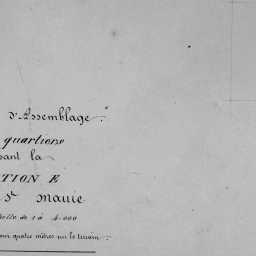 d'Assemblage.
quartiers
sant la
TION E
St Maurie
elle de 1 à 4.000
our quatre mètres sur le terrain.